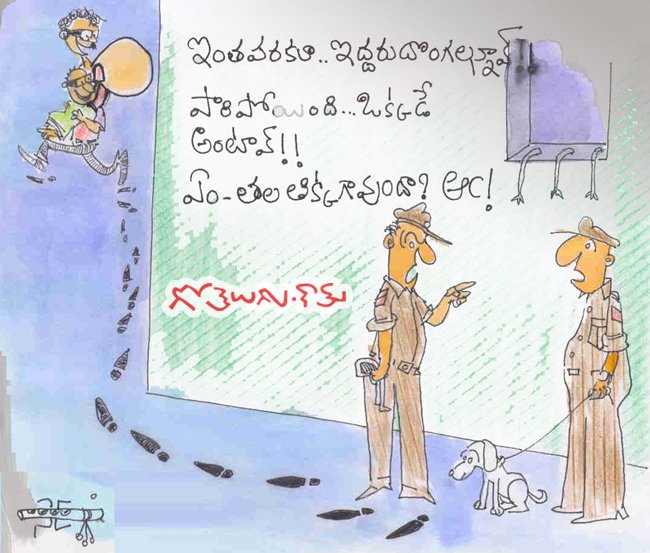 ఇంతవరకూ.. ఇద్దరుదొంగలన్నావ్!!
పారిపోయింది...ఒక్కడే
అంటావ్!!
ఏం-తల తిక్కగావుందా? ఆఁ!
గోతెలుగు.కామ్